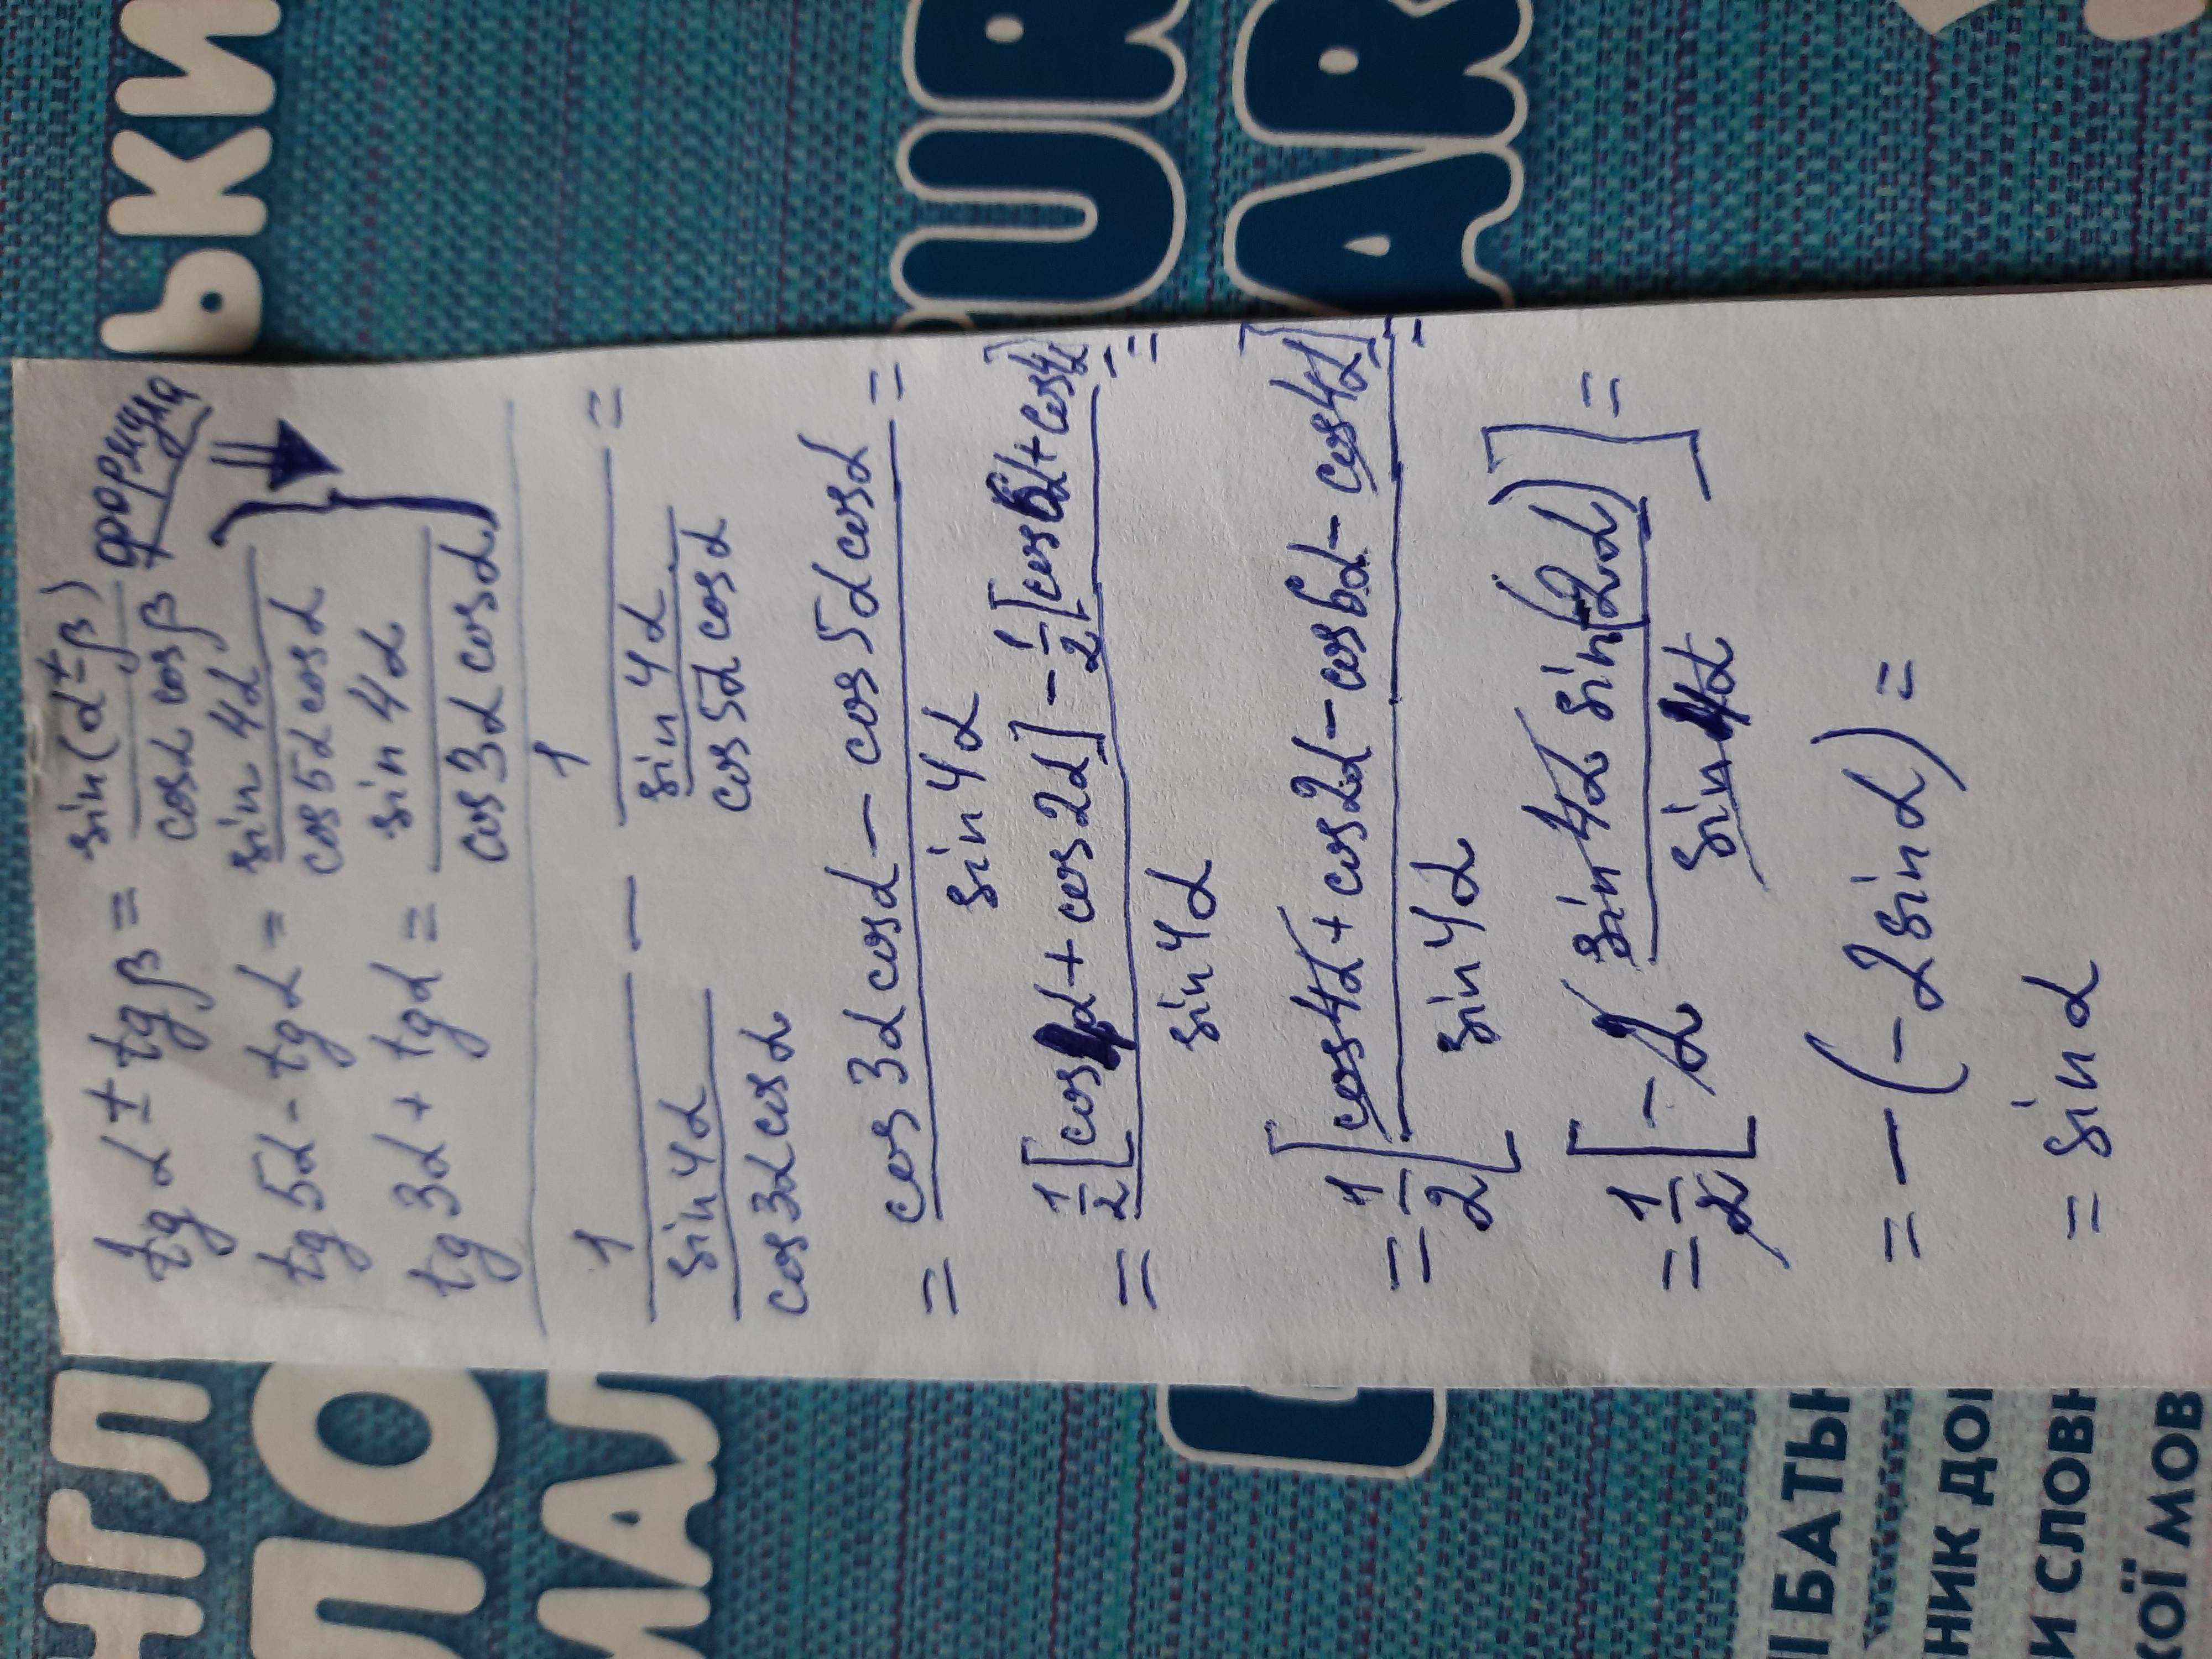 tg α ± tg β = sin(α ± β) / cos α cos β формула
tg 5α - tg α = sin 4α / cos 5α cos α
tg 3α + tg α = sin 4α / cos 3α cos α
1 / (sin 4α / cos 3α cos α) - 1 / (sin 4α / cos 5α cos α) =
= (cos 3α cos α - cos 5α cos α) / sin 4α =
= (1/2 [cos 4α + cos 2α] - 1/2 [cos 6α + cos 4α]) / sin 4α =
= 1/2 [(cos 4α + cos 2α - cos 6α - cos 4α) / sin 4α] =
= 1/2 [-2 (sin 4α sin(-2α)) / sin 4α] =
= - (-2 sin α) =
= sin α
ЬКИ
UR
AR
НГЛ
ПО
МАЛ
БАТЬ
НИК ДО
И СЛОВ
КОЇ МОВ